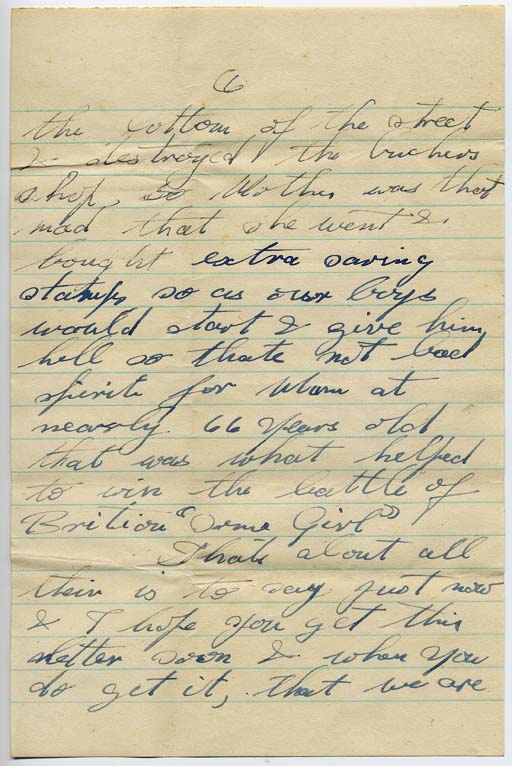 6
the bottom of the street
& destroyed the buchers
shop, so Mother was that
mad that she went &
bought extra saving
stamps so as our boys
would start & give him
hell so thats not bad
spirit for Mum at
nearly 66 years old
that was what helped
to win the battle of
Brition "Some Girl"
Thats about all
their is to say just now
& I hope you get this
letter soon & when you
do get it, that we are